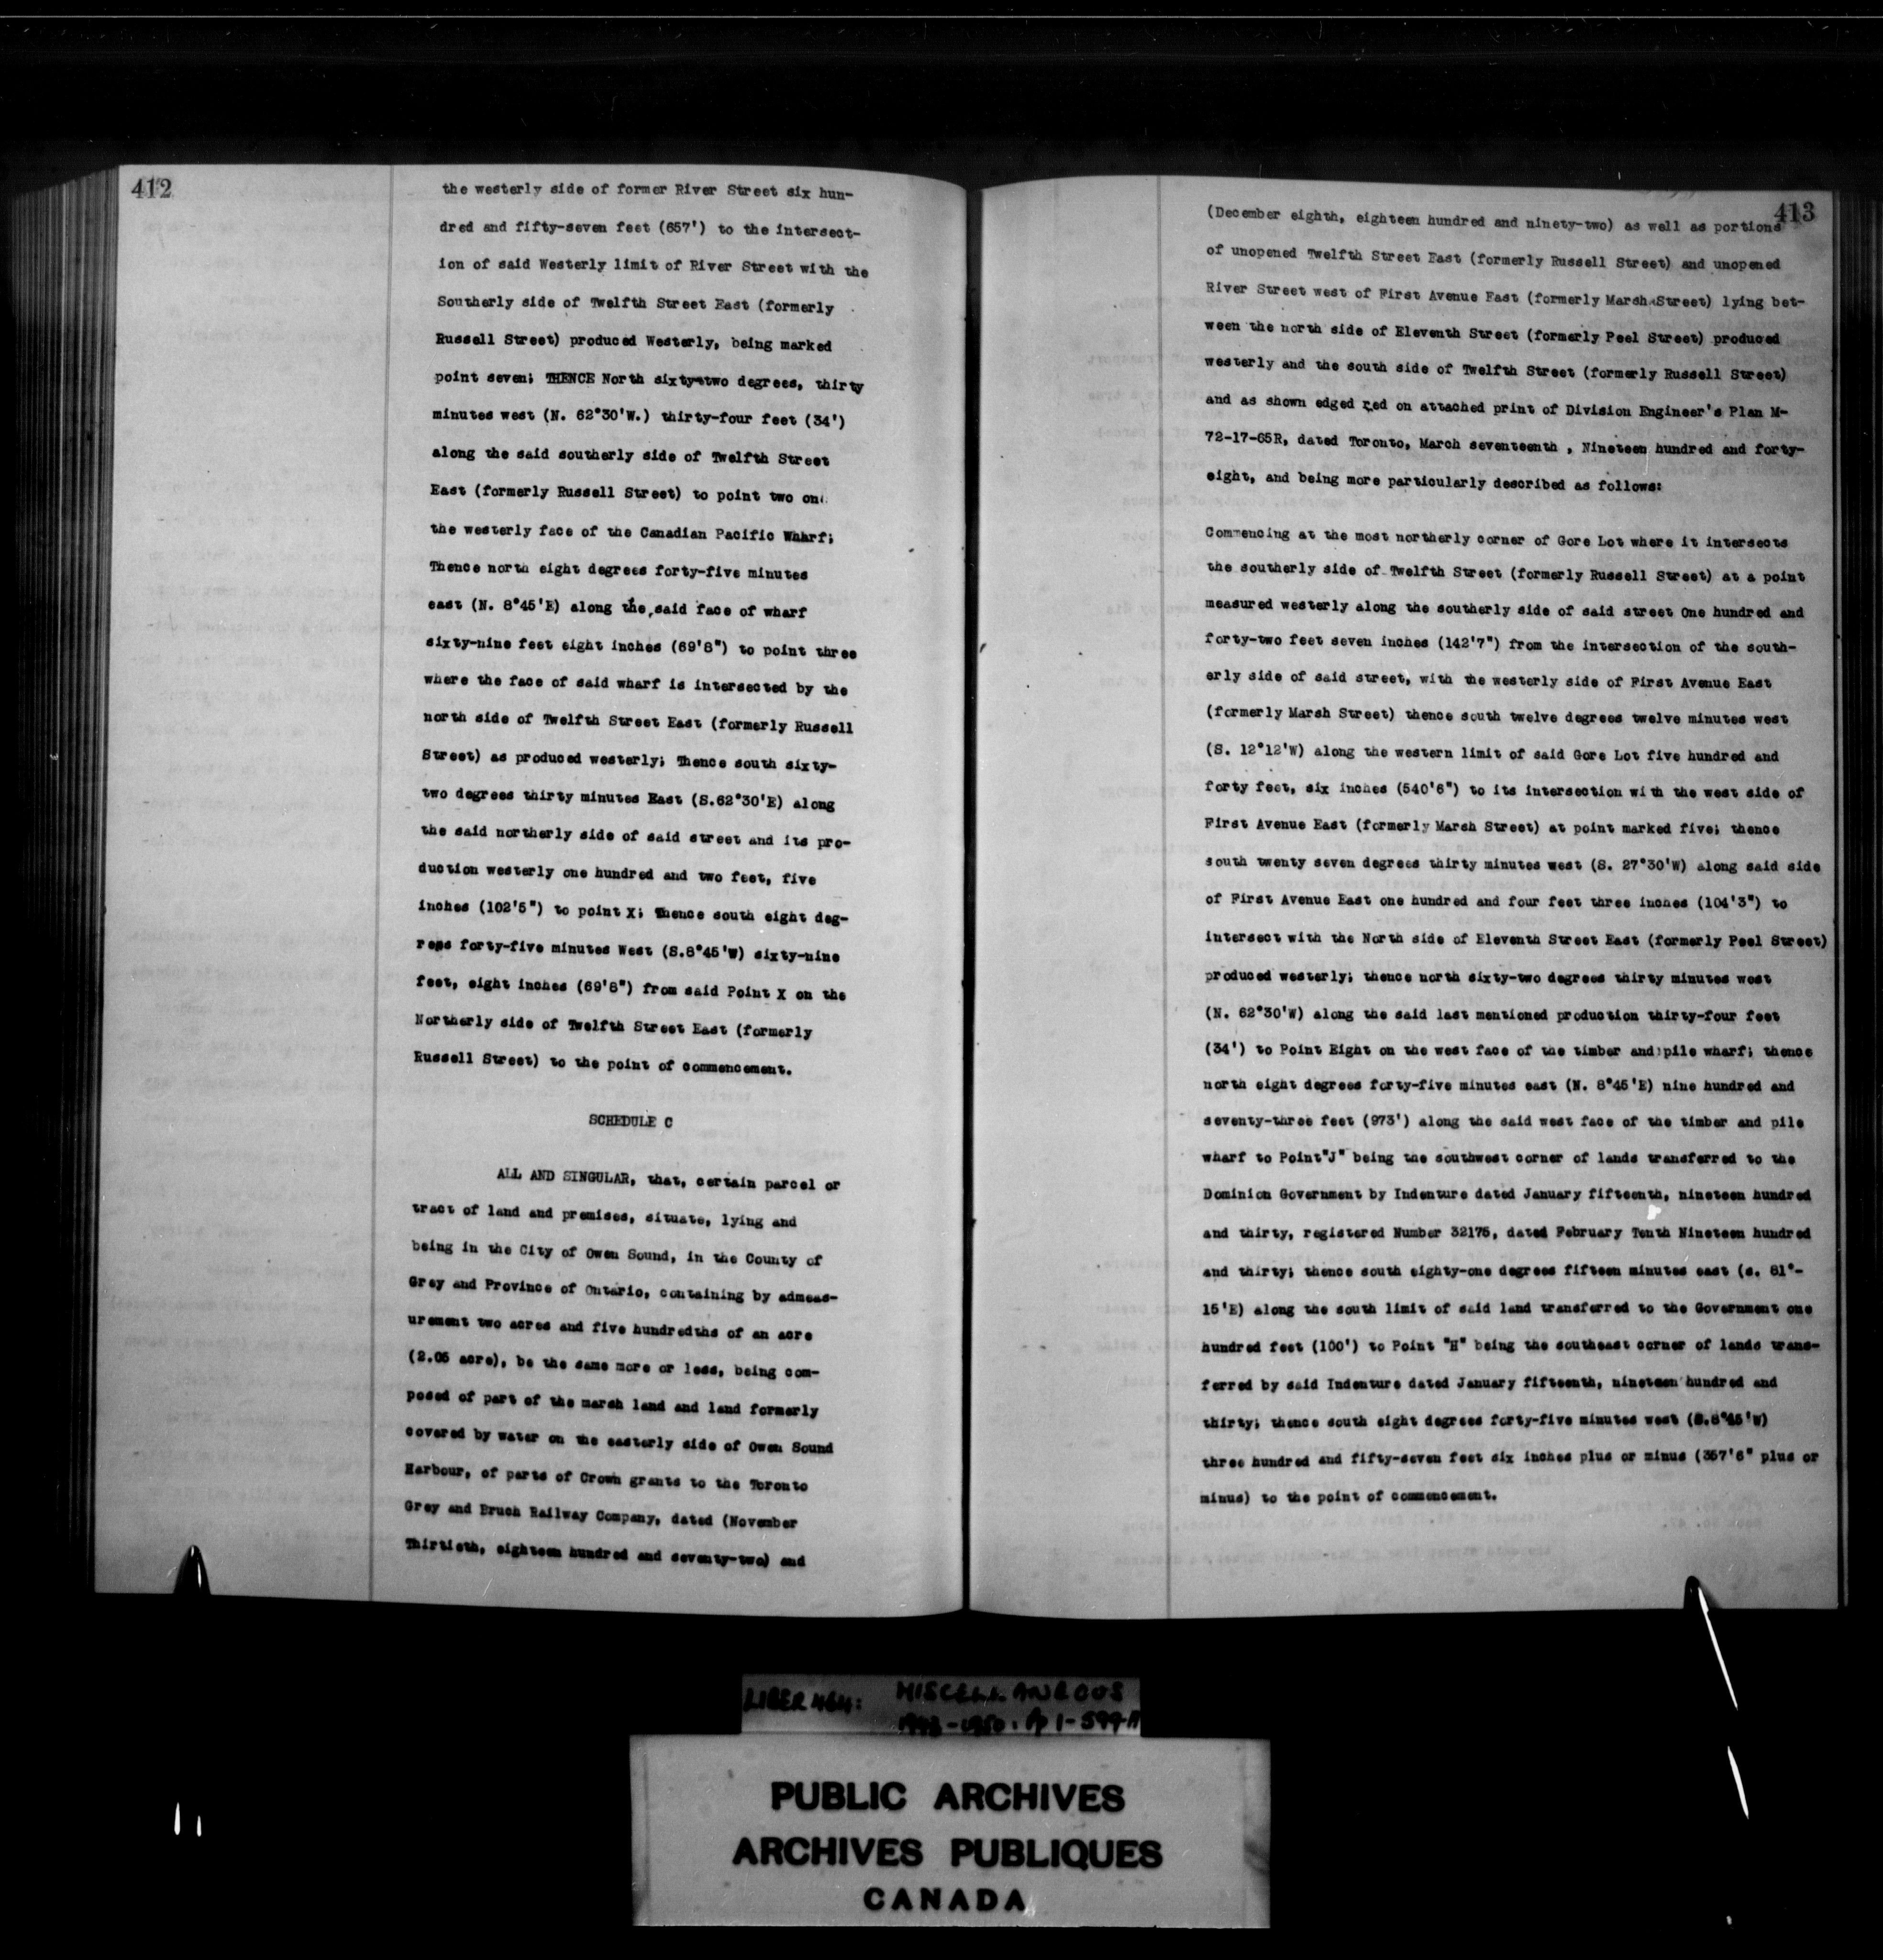 412
the westerly side of former River Street six hun-
dred and fifty-seven feet (657') to the intersect-
ion of said Westerly limit of River Street with the
Southerly side of Twelfth Street East (formerly
Russell Street) produced Westerly, being marked
point seven; THENCE North sixty-two degrees, thirty
minutes west (N. 62°30'W.) thirty-four feet (34')
along the said southerly side of Twelfth Street
East (formerly Russell Street) to point two on
the westerly face of the Canadian Pacific Wharf;
Thence north eight degrees forty-five minutes
east (N. 8°45'E) along the said face of wharf
sixty-nine feet eight inches (69'8") to point three
where the face of said wharf is intersected by the
north side of Twelfth Street East (formerly Russell
Street) as produced westerly; Thence south sixty-
two degrees thirty minutes East (S.62°30'E) along
the said northerly side of said street and its pro-
duction westerly one hundred and two feet, five
inches (102'5") to point X; Thence south eight deg-
rees forty-five minutes West (S.8°45'W) sixty-nine
feet, eight inches (69'8") from said Point X on the
Northerly side of Twelfth Street East (formerly
Russell Street) to the point of commencement.
SCHEDULE C
ALL AND SINGULAR, that, certain parcel or
tract of land and premises, situate, lying and
being in the City of Owen Sound, in the County of
Grey and Province of Ontario, containing by admeas-
urement two acres and five hundredths of an acre
(2.05 acre), be the same more or less, being com-
posed of part of the marsh land and land formerly
covered by water on the easterly side of Owen Sound
Harbour, of parts of Crown grants to the Toronto
Grey and Bruch Railway Company, dated (November
Thirtieth, eighteen hundred and seventy-two) and
413
(December eighth, eighteen hundred and ninety-two) as well as portions
of unopened Twelfth Street East (formerly Russell Street) and unopened
River Street west of First Avenue East (formerly Marsh Street) lying bet-
ween the north side of Eleventh Street (formerly Peel Street) produced
westerly and the south side of Twelfth Street (formerly Russell Street)
and as shown edged red on attached print of Division Engineer's Plan M-
72-17-65R, dated Toronto, March seventeenth , Nineteen hundred and forty-
eight, and being more particularly described as follows:
Commencing at the most northerly corner of Gore Lot where it intersects
the southerly side of Twelfth Street (formerly Russell Street) at a point
measured westerly along the southerly side of said street One hundred and
forty-two feet seven inches (142'7") from the intersection of the south-
erly side of said street, with the westerly side of First Avenue East
(formerly Marsh Street) thence south twelve degrees twelve minutes west
(S. 12°12'W) along the western limit of said Gore Lot five hundred and
forty feet, six inches (540'6") to its intersection with the west side of
First Avenue East (formerly Marsh Street) at point marked five; thence
south twenty seven degrees thirty minutes west (S. 27°30'W) along said side
of First Avenue East one hundred and four feet three inches (104'3") to
intersect with the North side of Eleventh Street East (formerly Peel Street)
produced westerly; thence north sixty-two degrees thirty minutes west
(N. 62°30'W) along the said last mentioned production thirty-four feet
(34') to Point Eight on the west face of the timber and pile wharf; thence
north eight degrees forty-five minutes east (N. 8°45'E) nine hundred and
seventy-three feet (973') along the said west face of the timber and pile
wharf to Point"J" being the southwest corner of lands transferred to the
Dominion Government by Indenture dated January fifteenth, nineteen hundred
and thirty, registered Number 32175, dated February Tenth Nineteen hundred
and thirty; thence south eighty-one degrees fifteen minutes east (s. 81°-
15'E) along the south limit of said land transferred to the Government one
hundred feet (100') to Point "H" being the southeast corner of lands trans-
ferred by said Indenture dated January fifteenth, nineteen hundred and
thirty; thence south eight degrees forty-five minutes west (S.8°45'W)
three hundred and fifty-seven feet six inches plus or minus (357'6" plus or
minus) to the point of commencement.
LIBER 464: MISCELLANEOUS
1948-1950. Pp 1-599
PUBLIC ARCHIVES
ARCHIVES PUBLIQUES
CANADA